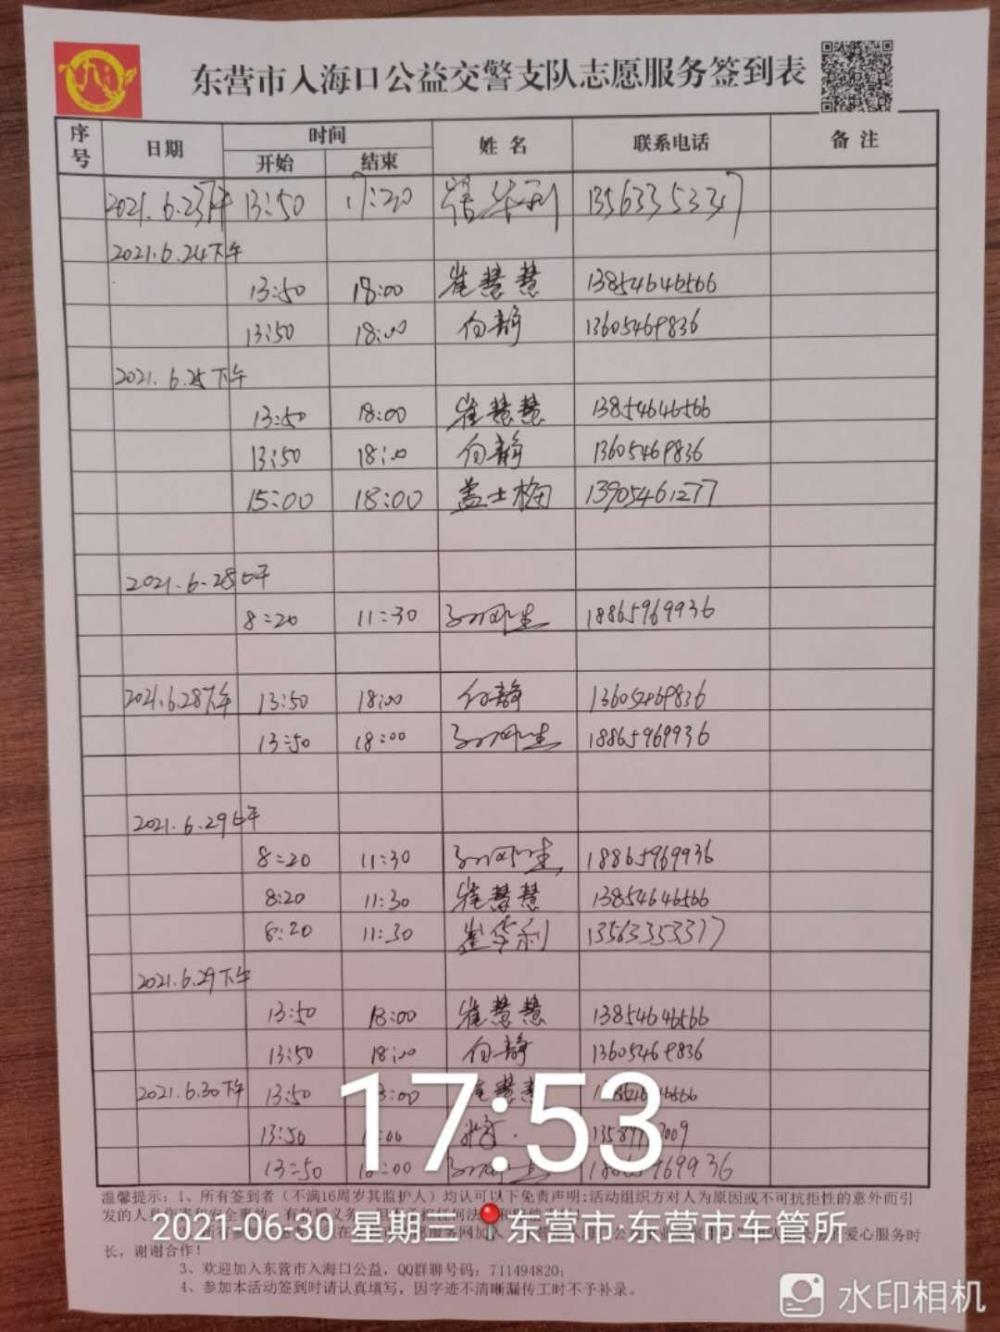 东营市入海口公益交警支队志愿服务签到表
序号 日期 时间 姓名 联系电话 备注
开始 结束
2021.6.23下午 13:50 17:20 华利 13563353347
2021.6.24下午
13:50 18:00 崔慧慧 13854646566
13:50 18:00 向静 13605469836
2021.6.25下午
13:50 18:00 崔慧慧 13854646566
13:50 18:00 向静 13605469836
15:00 18:00 盖士梅 13905461277
2021.6.28上午
8:20 11:30 18865969936
2021.6.28下午 13:50 18:00 向静 13605469836
13:50 18:00 18865969936
2021.6.29上午
8:20 11:30 18865969936
8:20 11:30 崔慧慧 13854646566
8:20 11:30 崔华利 13563353377
2021.6.29下午
13:50 18:00 崔慧慧 13854646566
13:50 18:00 向静 13605469836
2021.6.30下午 13:50 :00 崔慧慧
13:50 :00
13:50 :00
17:53
温馨提示：1、所有签到者（不满16周岁其监护人）均认可以下免责声明：活动组织方对人为原因或不可抗拒性的意外而引
2021-06-30 星期三 东营市·东营市车管所
爱心服务时
长，谢谢合作！
3、欢迎加入东营市入海口公益，QQ群聊号码：711494820；
4、参加本活动签到时请认真填写，因字迹不清晰漏传工时不予补录。
水印相机